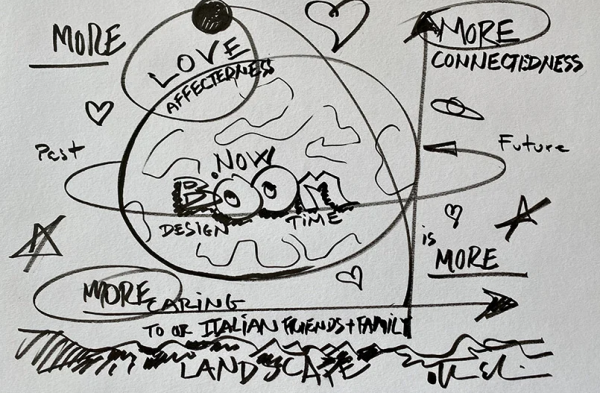 MORE
LOVE
AFFECTEDNESS
MORE
CONNECTEDNESS
Past
Future
NOW
BOOM
DESIGN TIME
is
MORE
MORE CARING
TO OR ITALIAN FRIENDS + FAMILY
LANDSCAPE